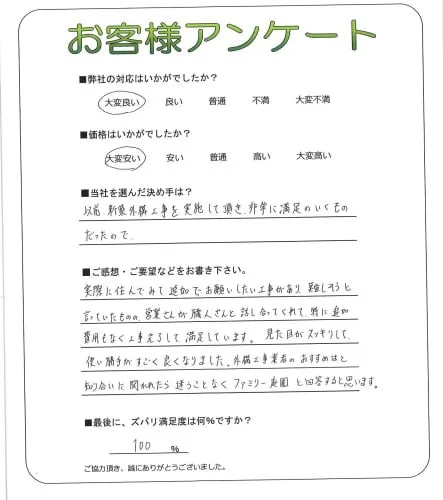 お客様アンケート
■弊社の対応はいかがでしたか？
大変良い 良い 普通 不満 大変不満
■価格はいかがでしたか？
大変安い 安い 普通 高い 大変高い
■当社を選んだ決め手は？
以前、新築外構工事を実施して頂き、非常に満足のいくもの
だったので、
■ご感想・ご要望などをお書き下さい。
実際に住んでみて追加でお願いしたい工事があり、難しそうと
言っていたものの、営業さんが職人さんと話し合ってくれて、特に追加
費用もなく工事として満足しています。見た目がスッキリして、
使い勝手がすごく良くなりました。外構工事業者のおすすめはと
知り合いに聞かれたら迷うことなくファミリー庭園と回答すると思います。
■最後に、ズバリ満足度は何%ですか？
100 %
ご協力頂き、誠にありがとうございました。